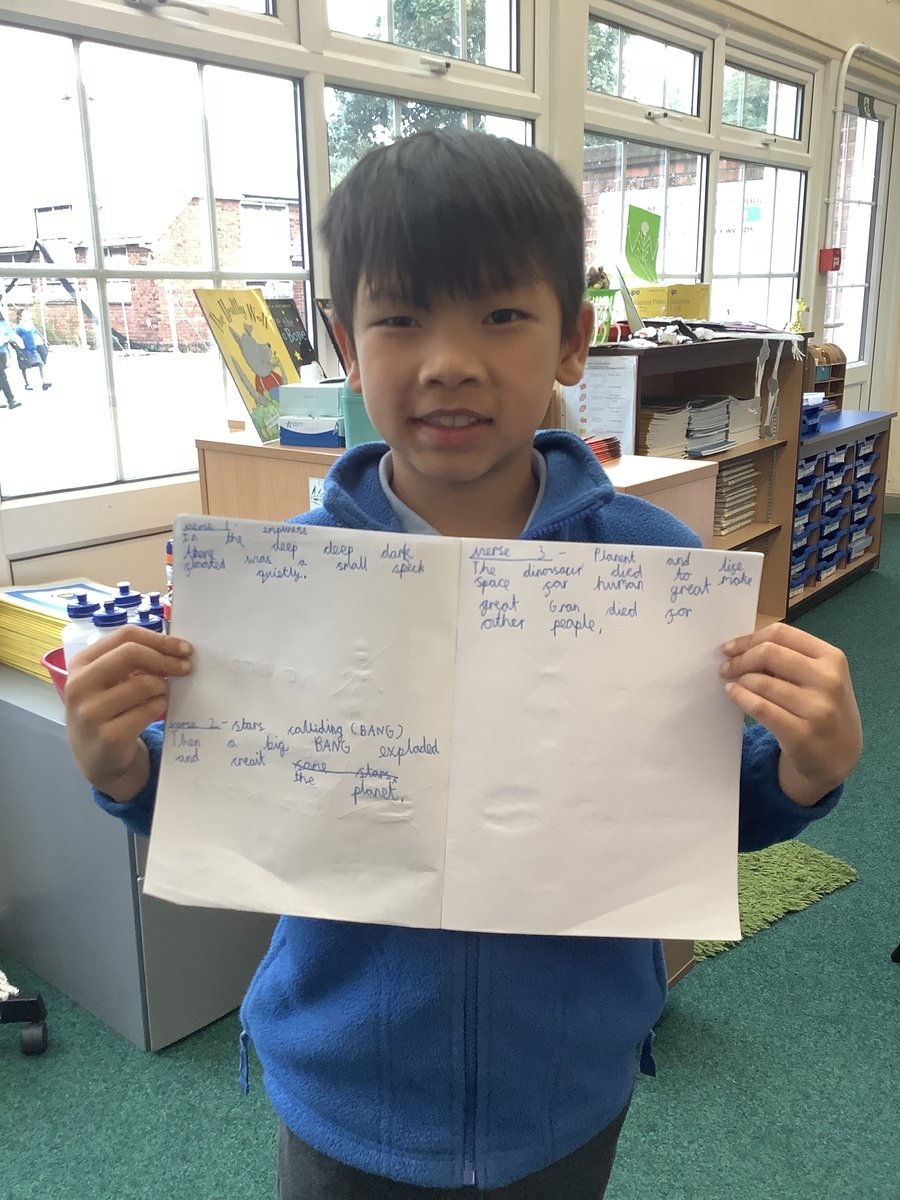 verse 1 - empiness
In the deep deep dark
there was a small speck
floated quietly.
verse 2 - stars colliding (BANG)
Then a big BANG exploded
and creait some stars,
the planet.
verse 3 - Planent and lise
The dinorsaur died to make
space for human great
great Gran died for
other people,